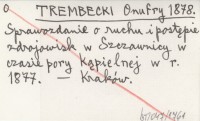 O
TREMBECKI Onufry 1878.
Sprawozdanie o ruchu i postępie
zdrojowisk w Szczawnicy w
czasie pory kąpielnej w r.
1877. — Kraków.